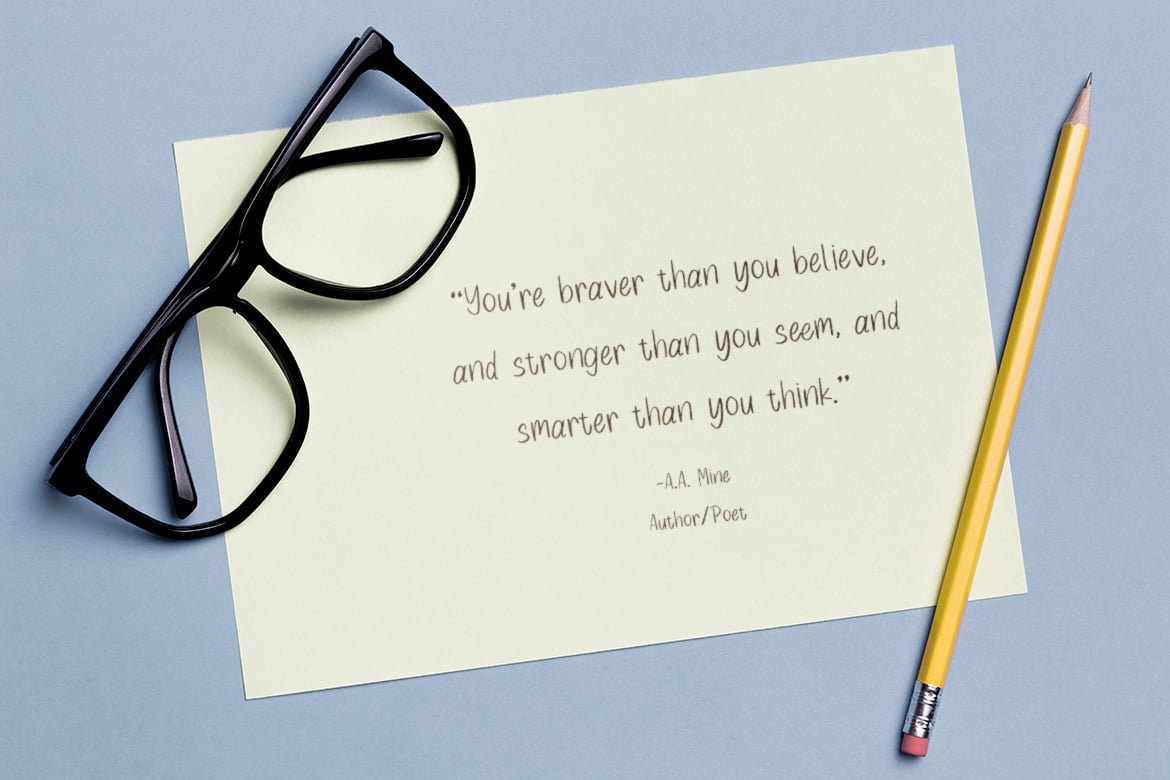 “You’re braver than you believe,
and stronger than you seem, and
smarter than you think.”
-A.A. Mine
Author/Poet